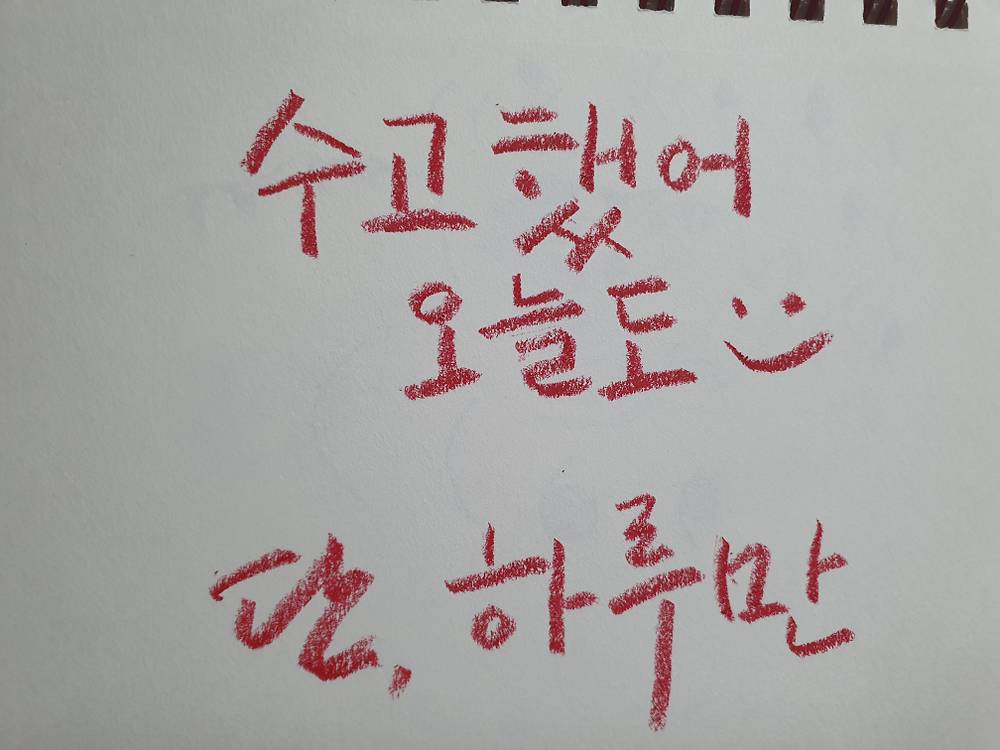 수고했어
오늘도
단, 하루만